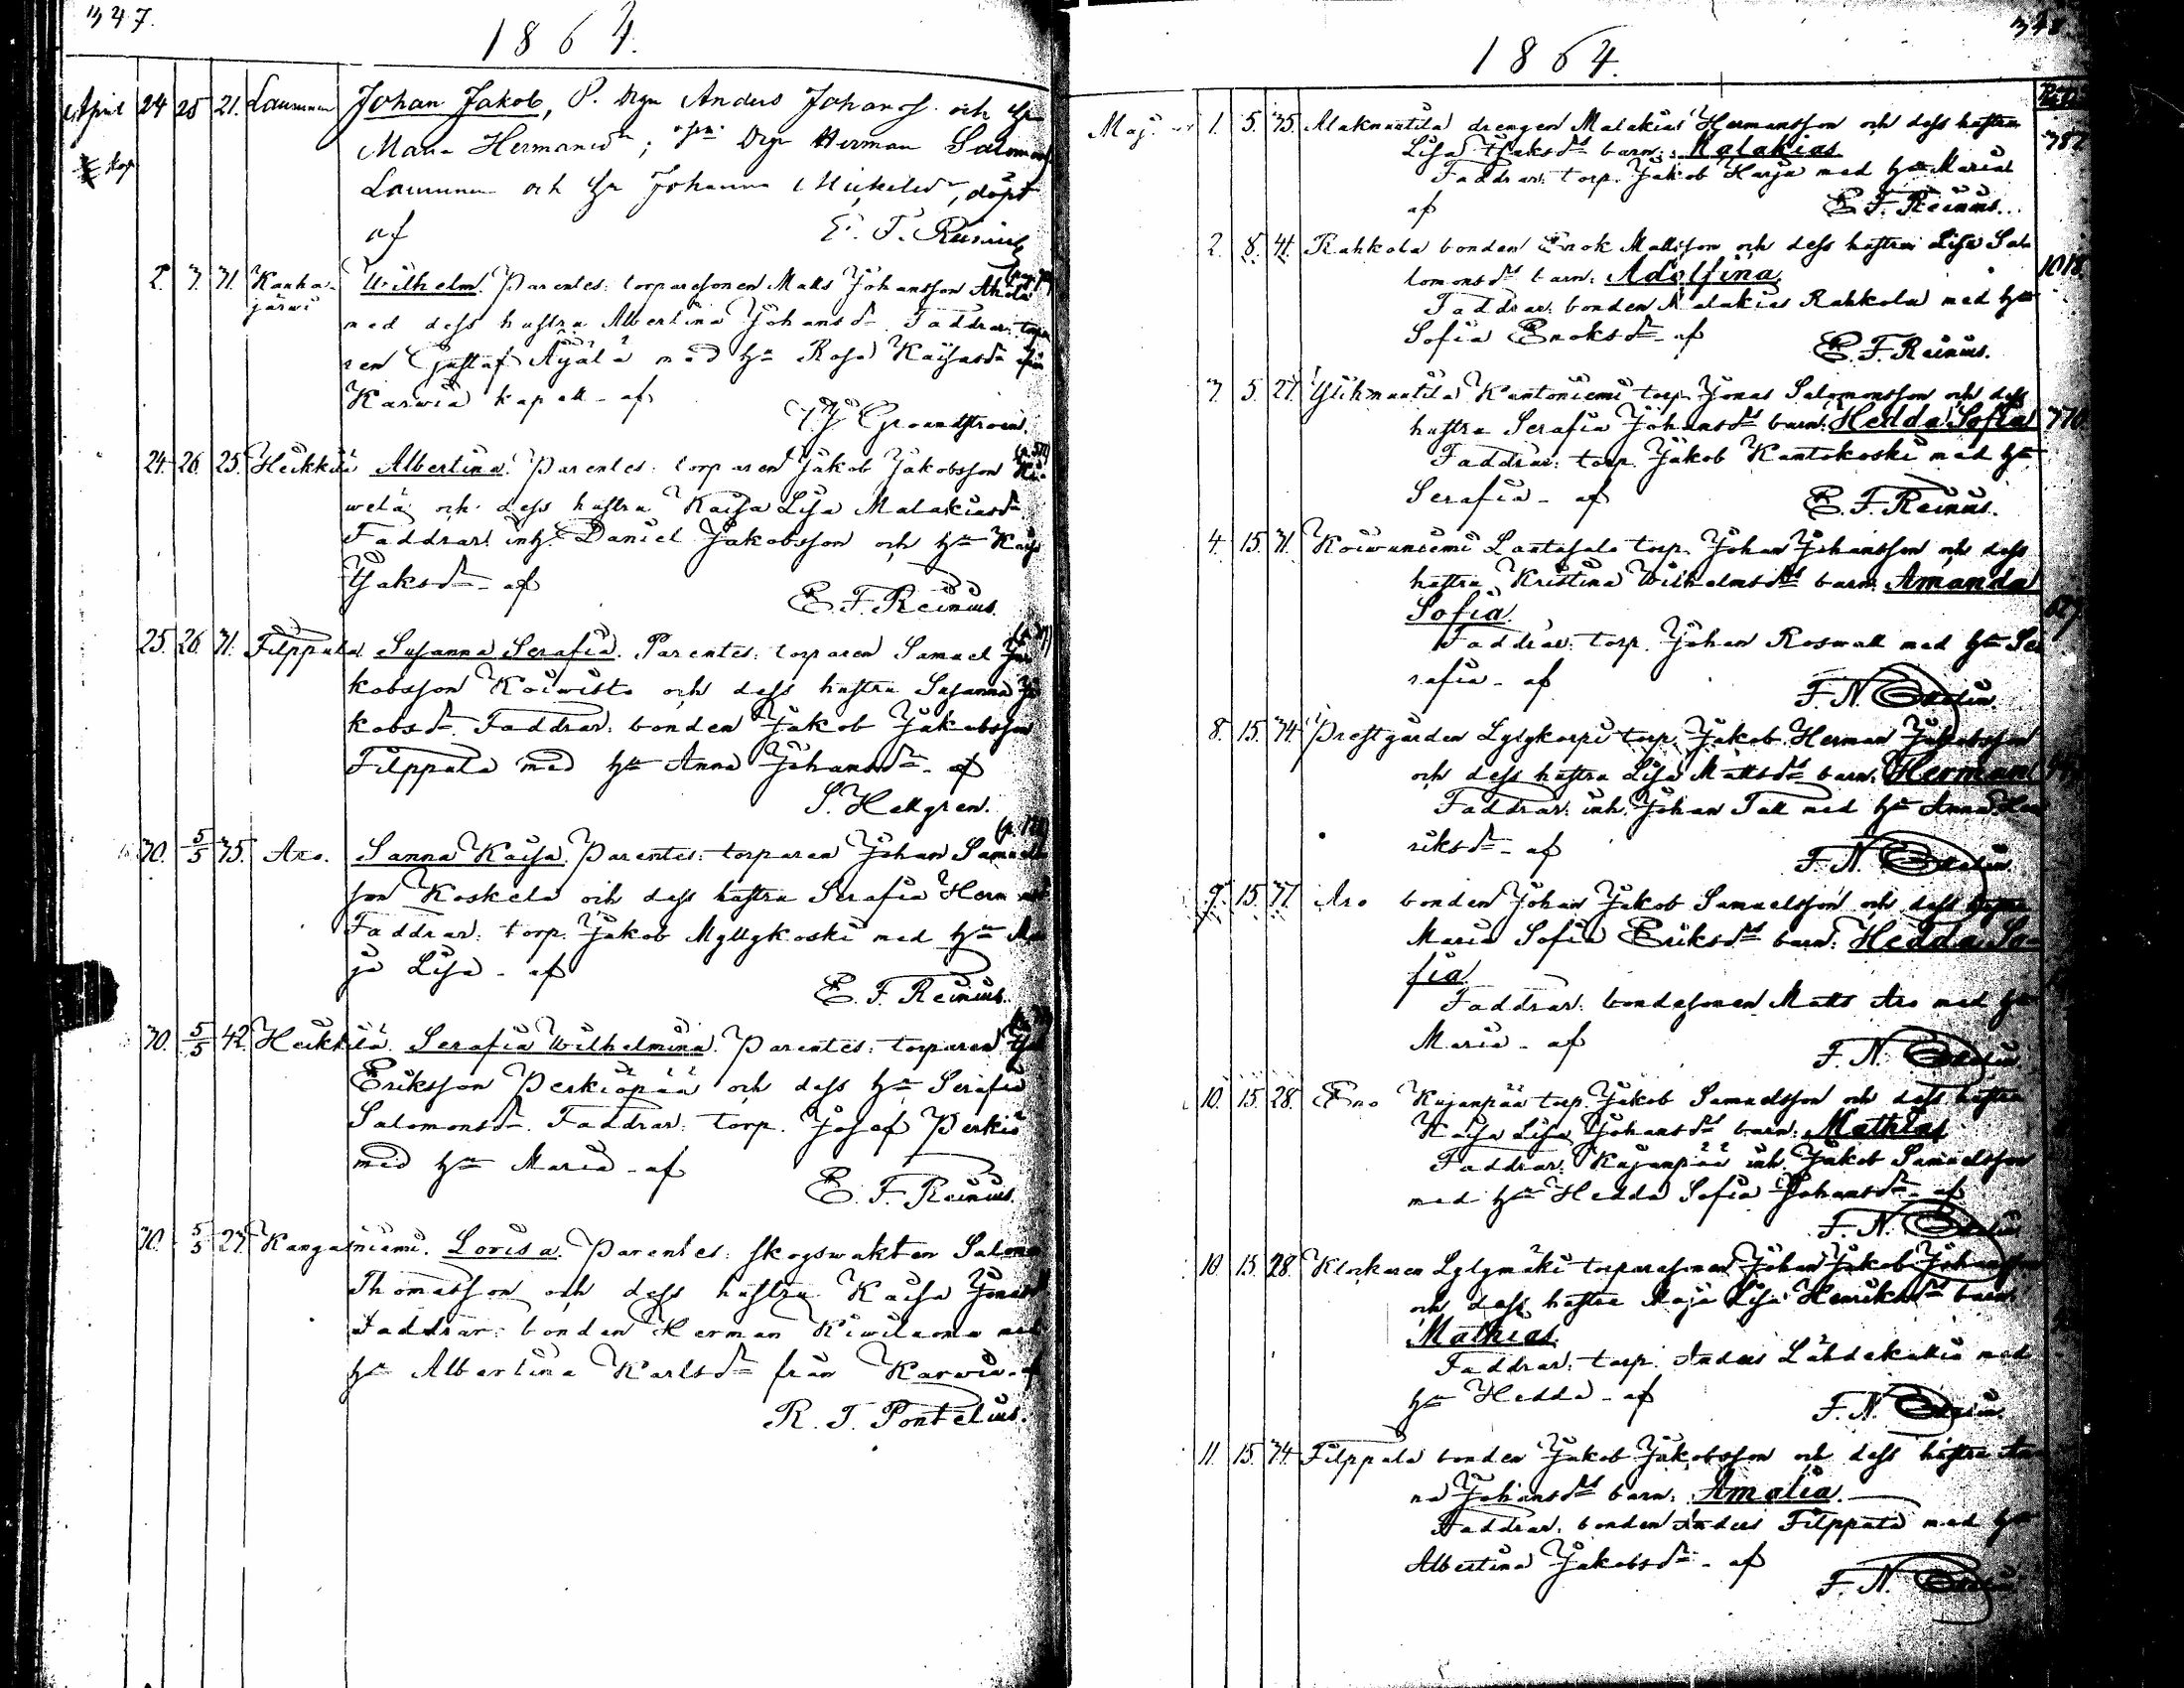 347.
1864.
April 24 25 21. Laurunen Johan Jakob, P. Drgn Anders Johanss. och Hu
Maria Hermansdr; Drgn Herman Salomonss
Laurunen och Hu Johanna Michelsdr, döpt
af E. F. Reinius
2. 7. 31. Kanha- Wilhelm. Parentes: torparesonen Matts Johansson Ahola
järwi med dess hustru Albertina Johansdr. Faddrar: torpa
ren Gustaf Äijälä med hu Rosa Kaisasdr från
Karwia kapell - af
J J Groundstroem.
24. 26. 25. Heikkilä Albertina. Parentes: torparen Jakob Jakobsson Ki-
welä och dess hustru Kaisa Lisa Malakiasdr.
Faddrar: inh. Daniel Jakobsson och hu Kaisa
Isaksdr - af
E. F. Reinius.
25. 26. 31. Filppula. Susanna Serafia. Parentes: torparen Samuel Ja-
kobsson Koiwisto och dess hustru Susanna Ja-
kobsdr. Faddrar: bonden Jakob Jakobsson
Filppula med hu Anna Johansdr - af
S. Hellgren.
30. 5/5 35. Aro. Sanna Kaisa. Parentes: torparen Johan Samuels-
son Koskela och dess hustru Serafia Herm
Faddrar: torp. Jakob Myllykoski med hu Ma-
ja Lisa - af
E. F. Reinius.
30. 5/5 42. Heikkilä. Serafia Wilhelmina. Parentes: torparen
Eriksson Perkiöpää och dess hu Serafia
Salomonsdr. Faddrar: torp. Josef Perkiö
med hu Maria - af
E. F. Reinius.
30. 5/5 27. Kangasniemi. Lovisa. Parentes: skogswakten Salomon
Thomasson och dess hustru Kaisa Jonasdr
Faddrar: bonden Herman Kiwiluoma med
hu Albertina Karlsdr från Karwia - af
R. T. Pontelius.
348
1864.
Maj. 1. 5. 35. Alaknuutila drengen Malakias Hermansson och dess hustru
Lisa Isaksdrs barn: Malakias 382
Faddrar: torp. Jakob Harja med hu Maria
af E. F. Reinius.
2. 8. 41. Rahkola bonden Enok Mattsson och dess hustru Lisa Sa-
lomonsdrs barn: Adolfina 1018.
Faddrar: bonden Malakias Rahkola med hu
Sofia Enoksdr - af
E. F. Reinius.
3. 5. 27. Yliknuutila Kantoniemi torp. Jonas Salomonsson och dess
hustru Serafia Johansdrs barn: Hedda Sofia 370.
Faddrar: torp. Jakob Kantokoski med hu
Serafia - af
E. F. Reinius.
4. 15. 31. Koiwuniemi Lantasalo torp. Johan Johansson och dess
hustru Kristina Wilhelmsdrs barn: Amanda
Sofia.
Faddrar: torp. Johan Roswall med hu Se-
rafia - af
F. N.
8. 15. 34. Prestgården Lylykorpi torp. Jakob Herman Jakobsson
och dess hustru Lisa Mattsdrs barn: Herman
Faddrar: inh. Johan Tall med hu Anna
riksdr - af
F. N.
9. 15. 37. Aro bonden Johan Jakob Samuelsson och dess
Maria Sofia Eriksdrs barn: Hedda So-
fia
Faddrar: bondesonen Matts Aro med hu
Maria - af
F. N.
10. 15. 28. Eno Kujanpää torp. Jakob Samuelsson och dess hustru
Kaisa Lisa Johansdrs barn: Mathias
Faddrar: Kujanpää inh. Jakob Samuelsson
med hu Hedda Sofia Johansdr - af
F. N.
10. 15. 28. Klockaren Lylymäki torparesonen Johan Jakob Johansson
och dess hustru Maja Lisa Henriksdrs barn
Mathias
Faddrar: torp. Anders Lähdekallio med
hu Hedda - af
F. N.
11. 15. 34. Filppula bonden Jakob Jakobsson och dess hustru An-
na Johansdrs barn: Amalia.
Faddrar: bonden Anders Filppula med hu
Albertina Jakobsdr - af
F. N.